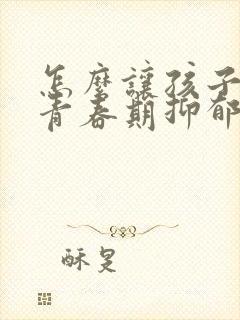 怎麼讓孩子
青春期抑郁
酥旻